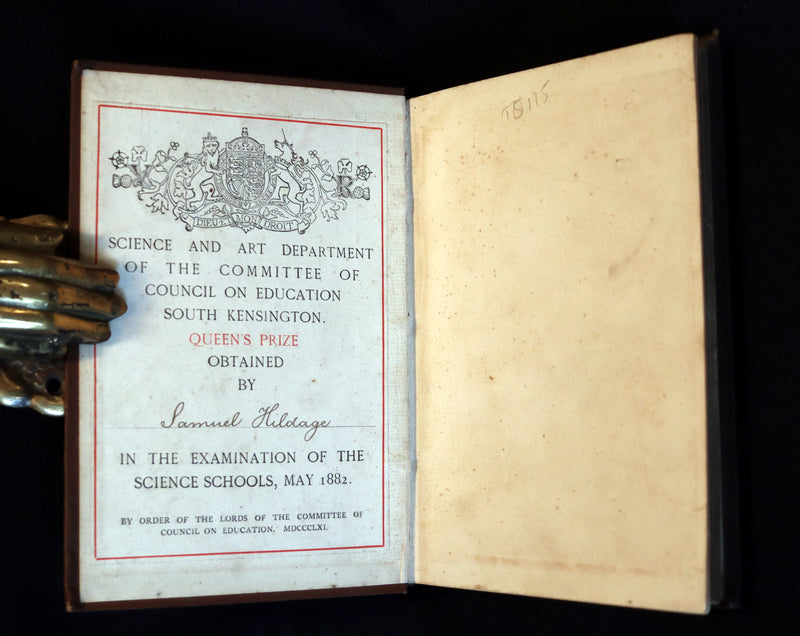 V R
DIEU ET MON DROIT
SCIENCE AND ART DEPARTMENT
OF THE COMMITTEE OF
COUNCIL ON EDUCATION
SOUTH KENSINGTON.
QUEEN'S PRIZE
OBTAINED
BY
Samuel Hildage
IN THE EXAMINATION OF THE
SCIENCE SCHOOLS, MAY 1882.
BY ORDER OF THE LORDS OF THE COMMITTEE OF
COUNCIL ON EDUCATION. MDCCCLXI.